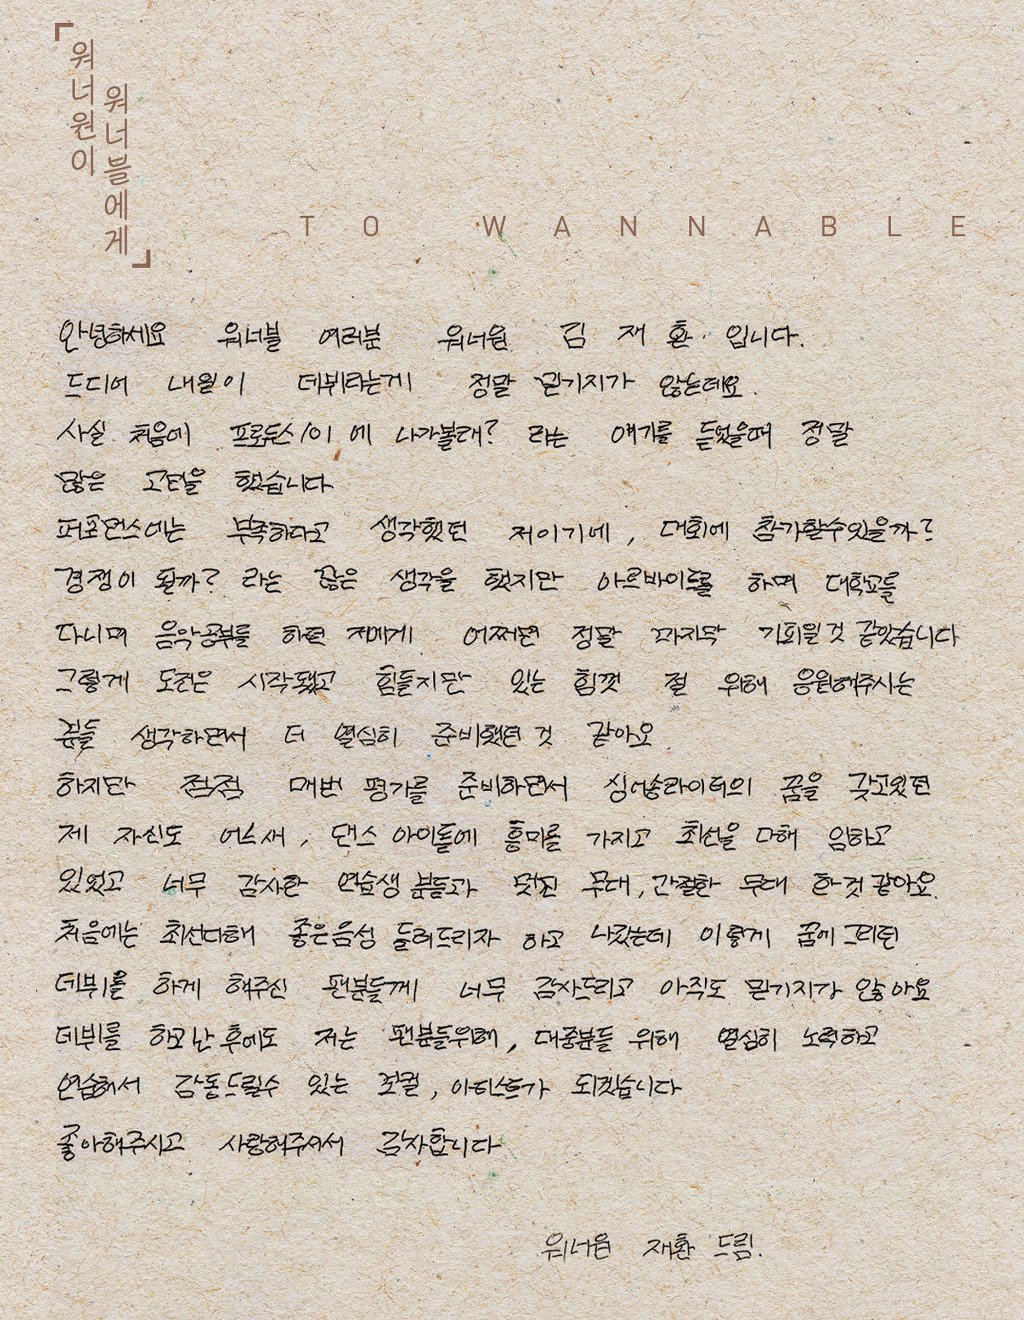 「워너원이
워너블에게」
TO WANNABLE
안녕하세요 워너블 여러분 워너원 김 재 환 입니다.
드디어 내일이 데뷔라는게 정말 믿기지가 않는데요.
사실 처음에 프로듀스 101 에 나가볼래? 라는 얘기를 들었을때 정말
많은 고민을 했습니다
퍼포먼스에는 부족하다고 생각했던 저이기에, 대회에 참가할수있을까?
경쟁이 될까? 라는 많은 생각을 했지만 아르바이트를 하며 대학교를
다니며 음악공부를 하던 저에게 어쩌면 정말 마지막 기회일것 같았습니다
그렇게 도전은 시작됐고 힘들지만 있는 힘껏 절 위해 응원해주시는
분들 생각하면서 더 열심히 준비했던 것 같아요.
하지만 점점 매번 평가를 준비하면서 싱어송라이터의 꿈을 갖고있던
제 자신도 어느새, 댄스 아이돌에 흥미를 가지고 최선을 다해 임하고
있었고 너무 감사한 연습생 분들과 멋진 무대, 간절한 무대 한것 같아요.
처음에는 최선다해 좋은음성 들려드리자 하고 나갔는데 이렇게 꿈에 그리던
데뷔를 하게 해주신 팬분들께 너무 감사드리고 아직도 믿기지가 않아요
데뷔를 하고 난 후에도 저는 팬분들위해, 대중분들 위해 열심히 노력하고
연습해서 감동드릴수 있는 보컬, 아티스트가 되겠습니다
좋아해주시고 사랑해주셔서 감사합니다
워너원 재환 드림.